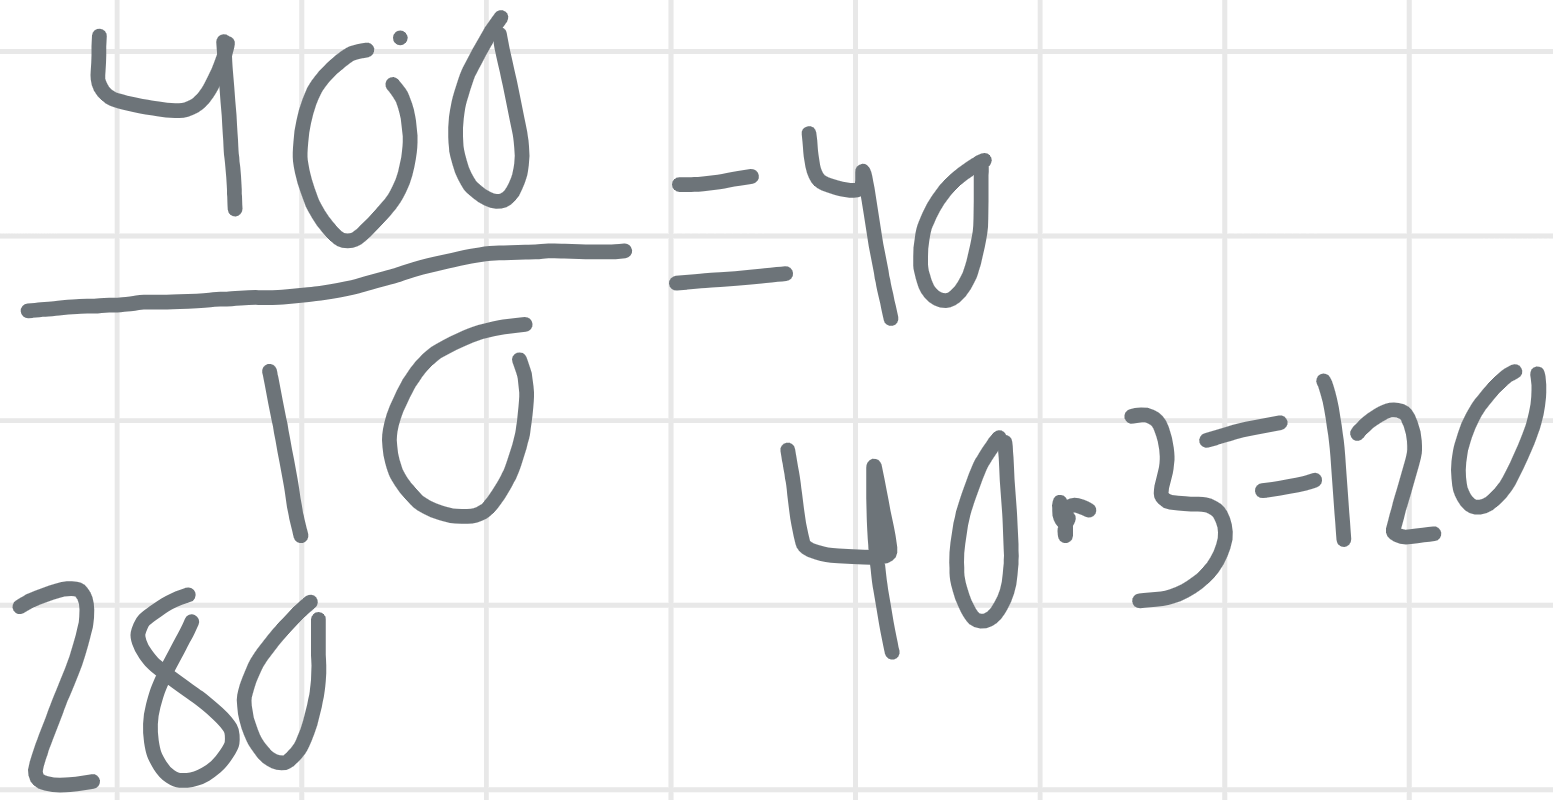 400
— = 40
10
40 · 3 = 120
280